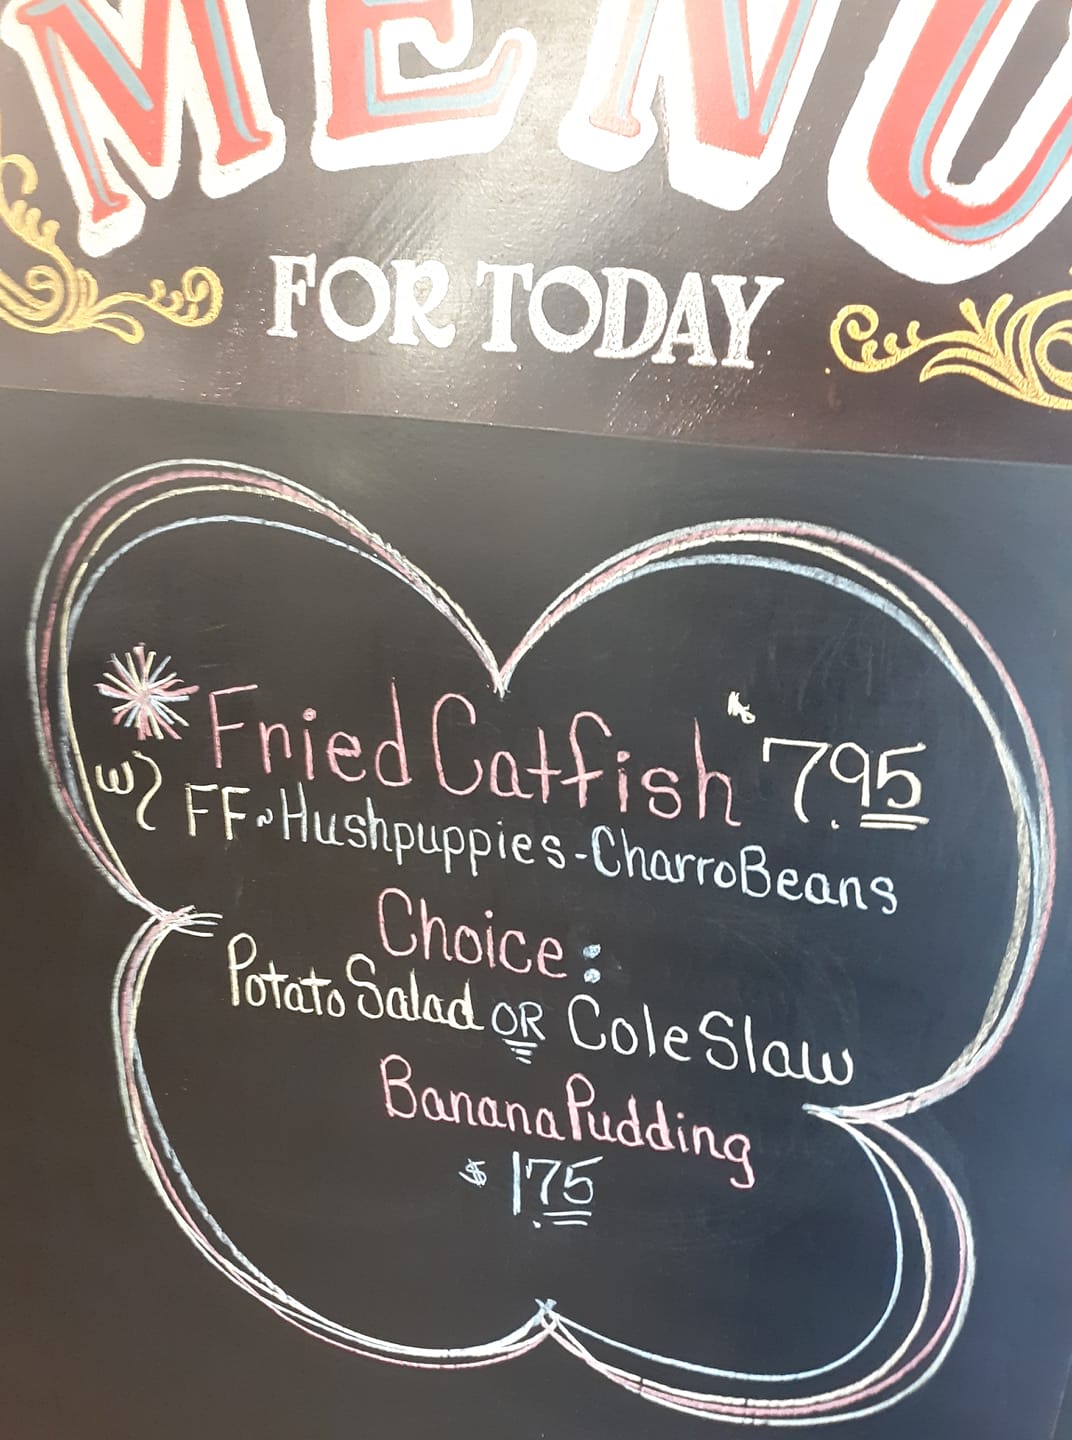 MENU
FOR TODAY
Fried Catfish $7.95
w/ FF~Hushpuppies-Charro Beans
Choice:
Potato Salad OR Cole Slaw
Banana Pudding
$1.75